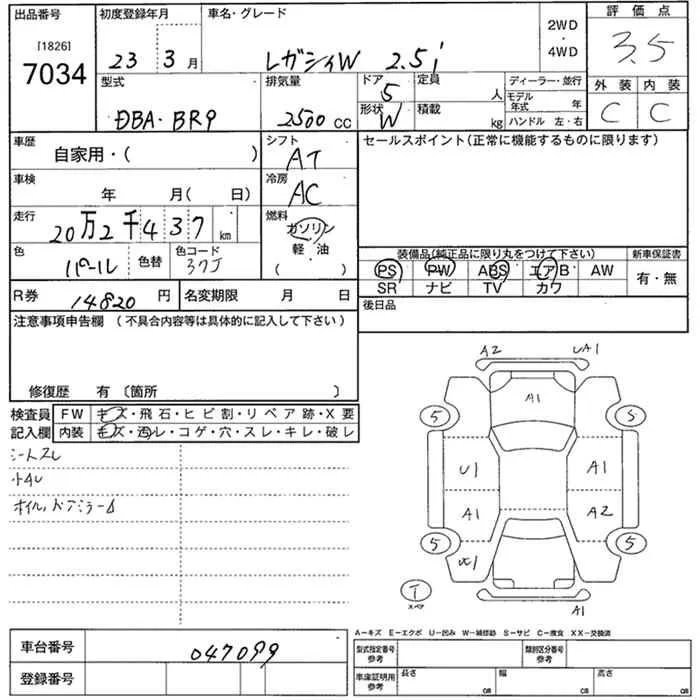 出品番号 初度登録年月 車名・グレード 2WD・4WD 評価点
[1826]
7034 23 3月 レガシィW 2.5i 3.5
型式 排気量 ドア 定員 ディーラー・並行 外装 内装
5 人 モデル年式 年 C C
DBA・BR9 2500CC 形状 W 積載 kg ハンドル 左・右
車歴 自家用・( ) シフト AT セールスポイント(正常に機能するものに限ります)
車検 年 月( 日) 冷房 AC
走行 20万2千437km 燃料 ガソリン
軽・油
( ・ )
色 パール 色替 色コード 37J 装備品(純正品に限り丸をつけて下さい) 新車保証書
PS PW ABS エアB AW 有・無
SR ナビ TV カワ
R券 14820円 名変期限 月 日 後日品
注意事項申告欄 (不具合内容等は具体的に記入して下さい)
修復歴 有 〔箇所 〕
検査員 FW キズ・飛石・ヒビ割・リペア跡・X要
記入欄 内装 キズ・汚レ・コゲ・穴・スレ・キレ・破レ
シートスレ
オイル,ドアミラー
A2 UA1
A1
5 S
U1 A1
A1 A2
5 5
T
スペア
A1
A−キズ E−エクボ U−凹み W−補修跡 S−サビ C−腐食 XX−交換済
車台番号 047099 型式指定番号 参考 類別区分番号 参考
登録番号 車庫証明用 参考 長さ cm 幅 cm 高さ cm